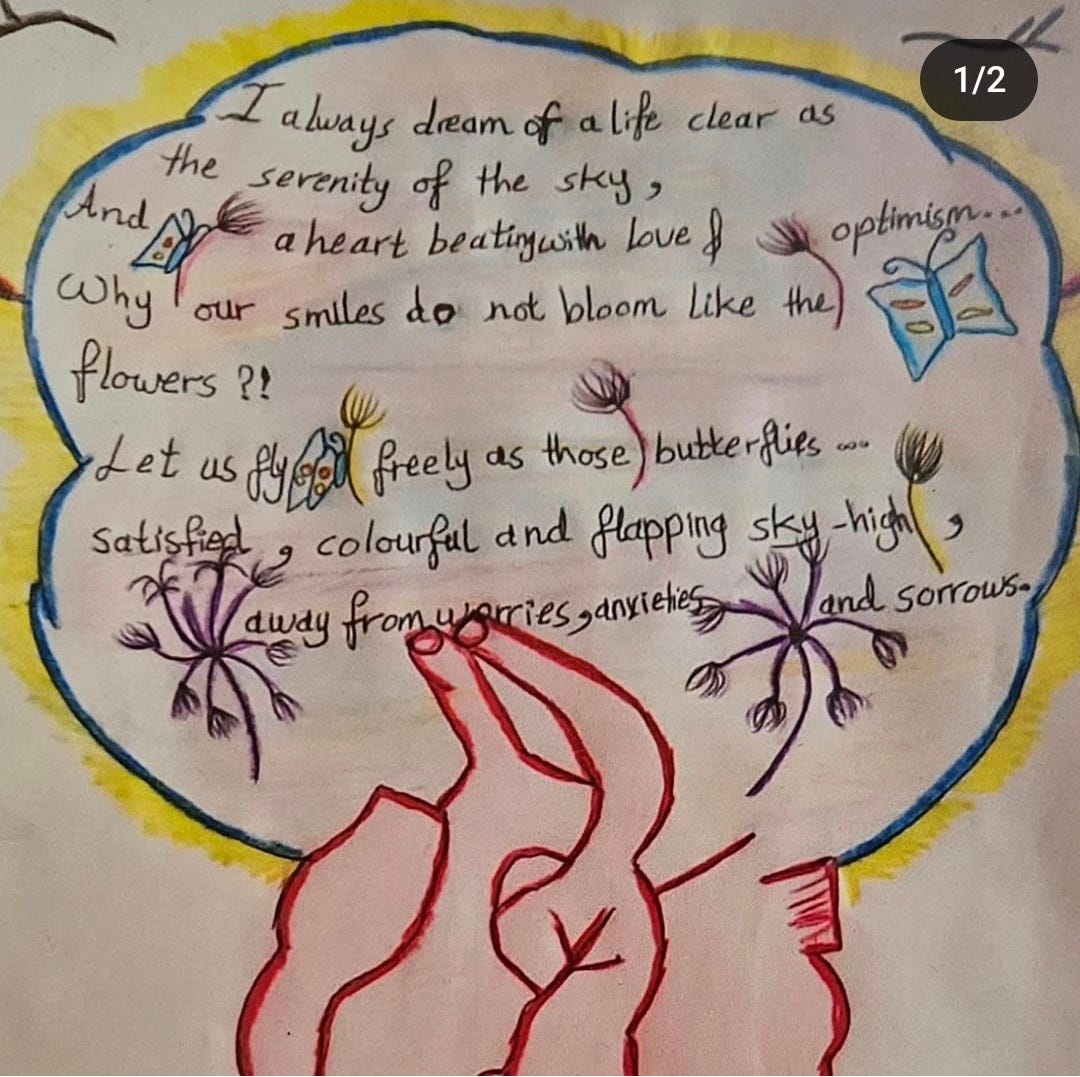 1/2
I always dream of a life clear as
the serenity of the sky,
And a heart beating with love & optimism...
Why our smiles do not bloom like the
flowers ?!
Let us fly freely as those butterflies ...
satisfied, colourful and flapping sky-high,
away from worries, anxieties and sorrows.